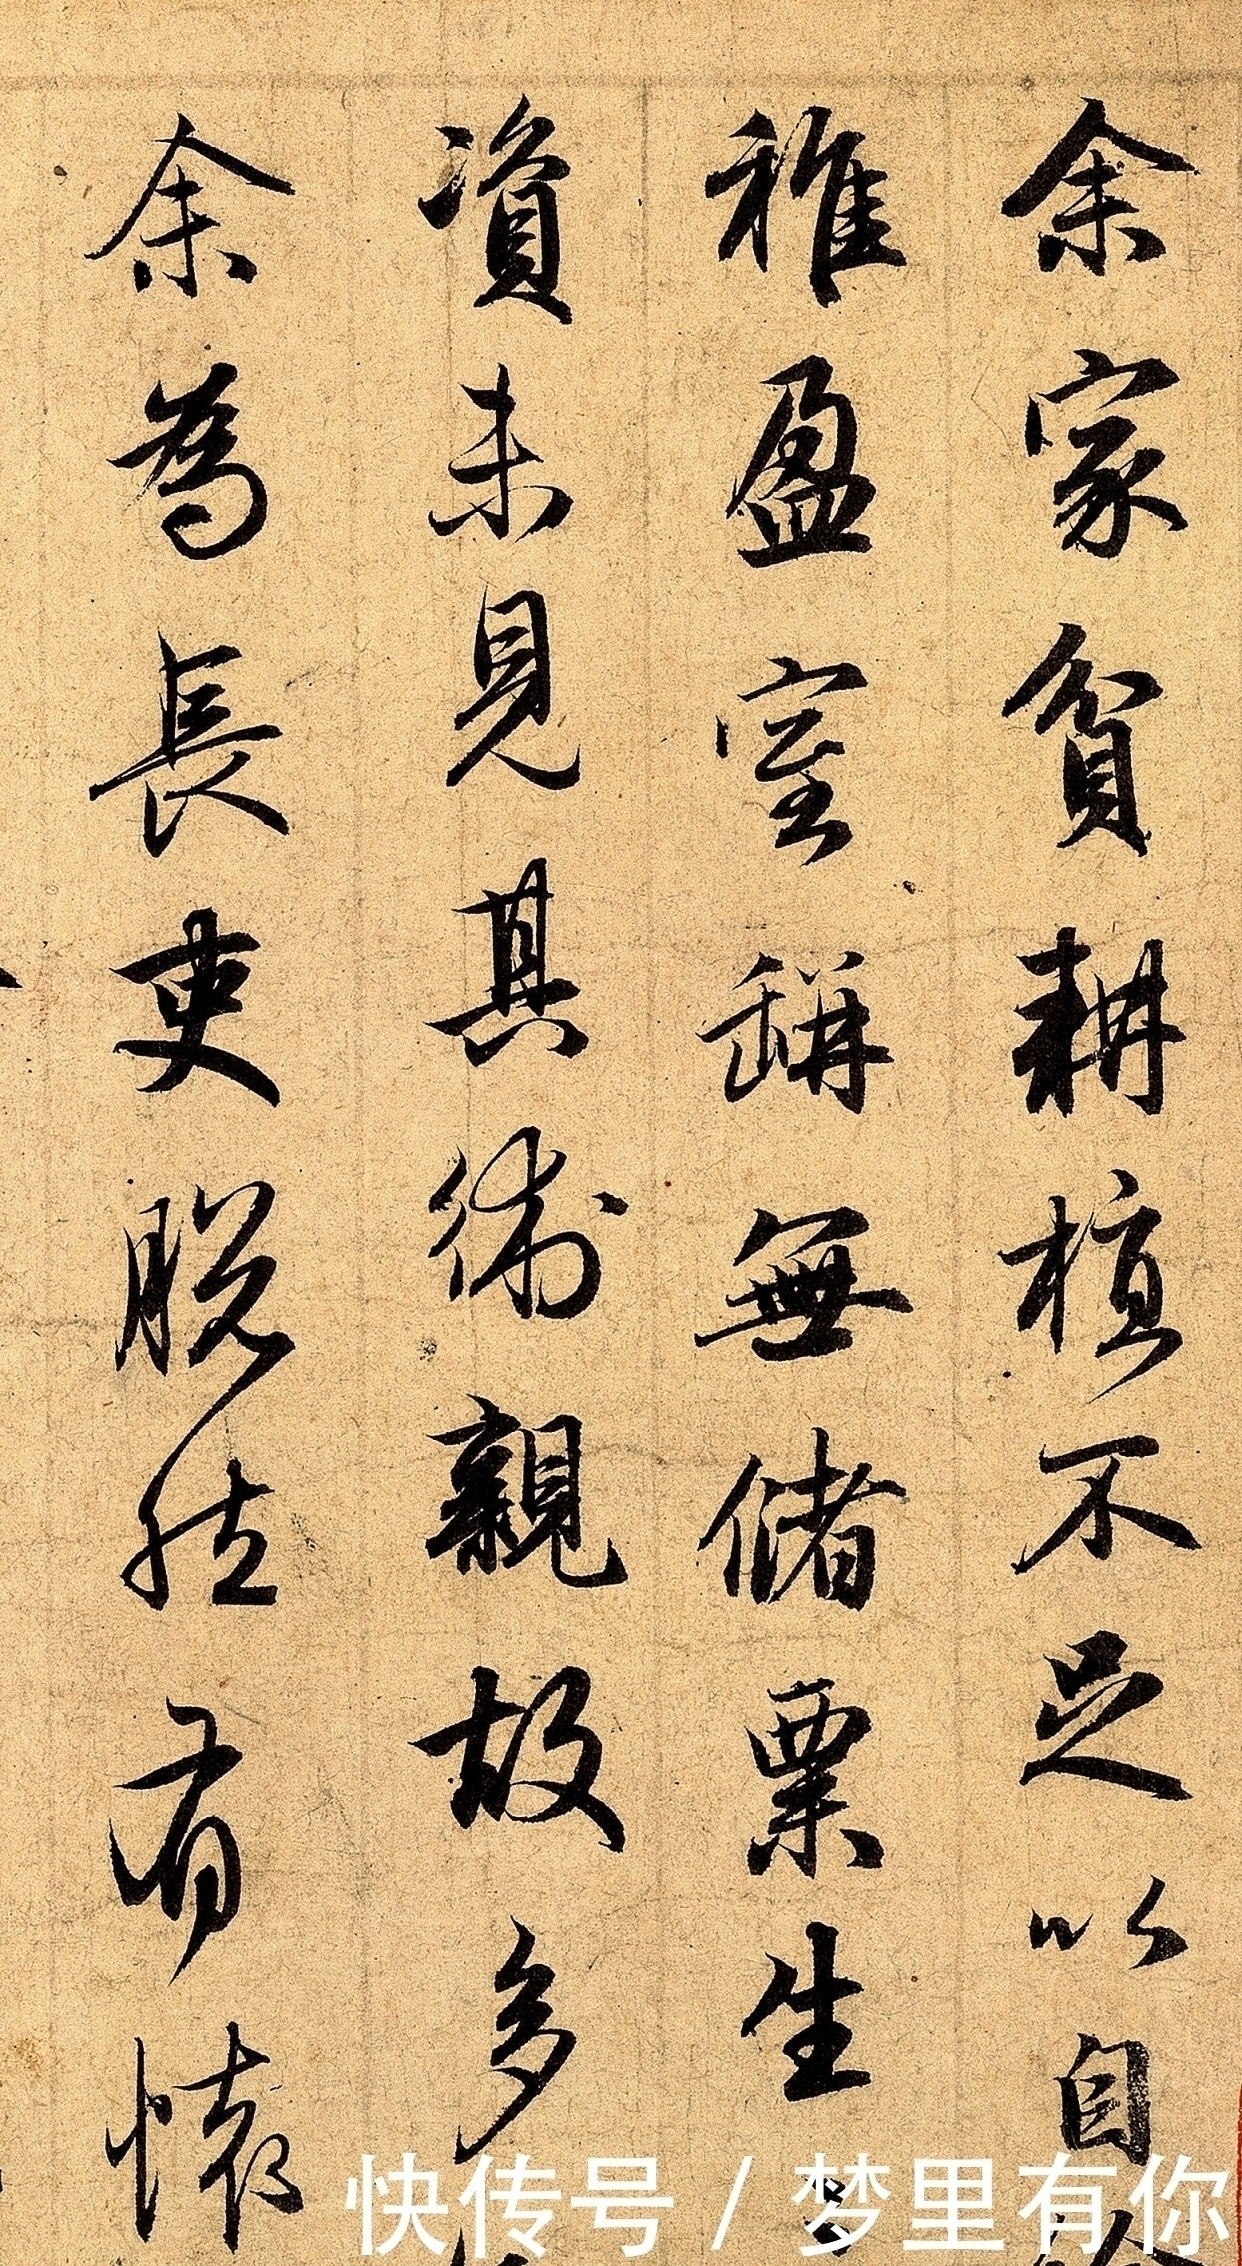 余家貧耕植不足以自
稚盈室缾無儲粟生
資未見其術親故多
余為長吏脫然有懷
快传号 / 梦里有你